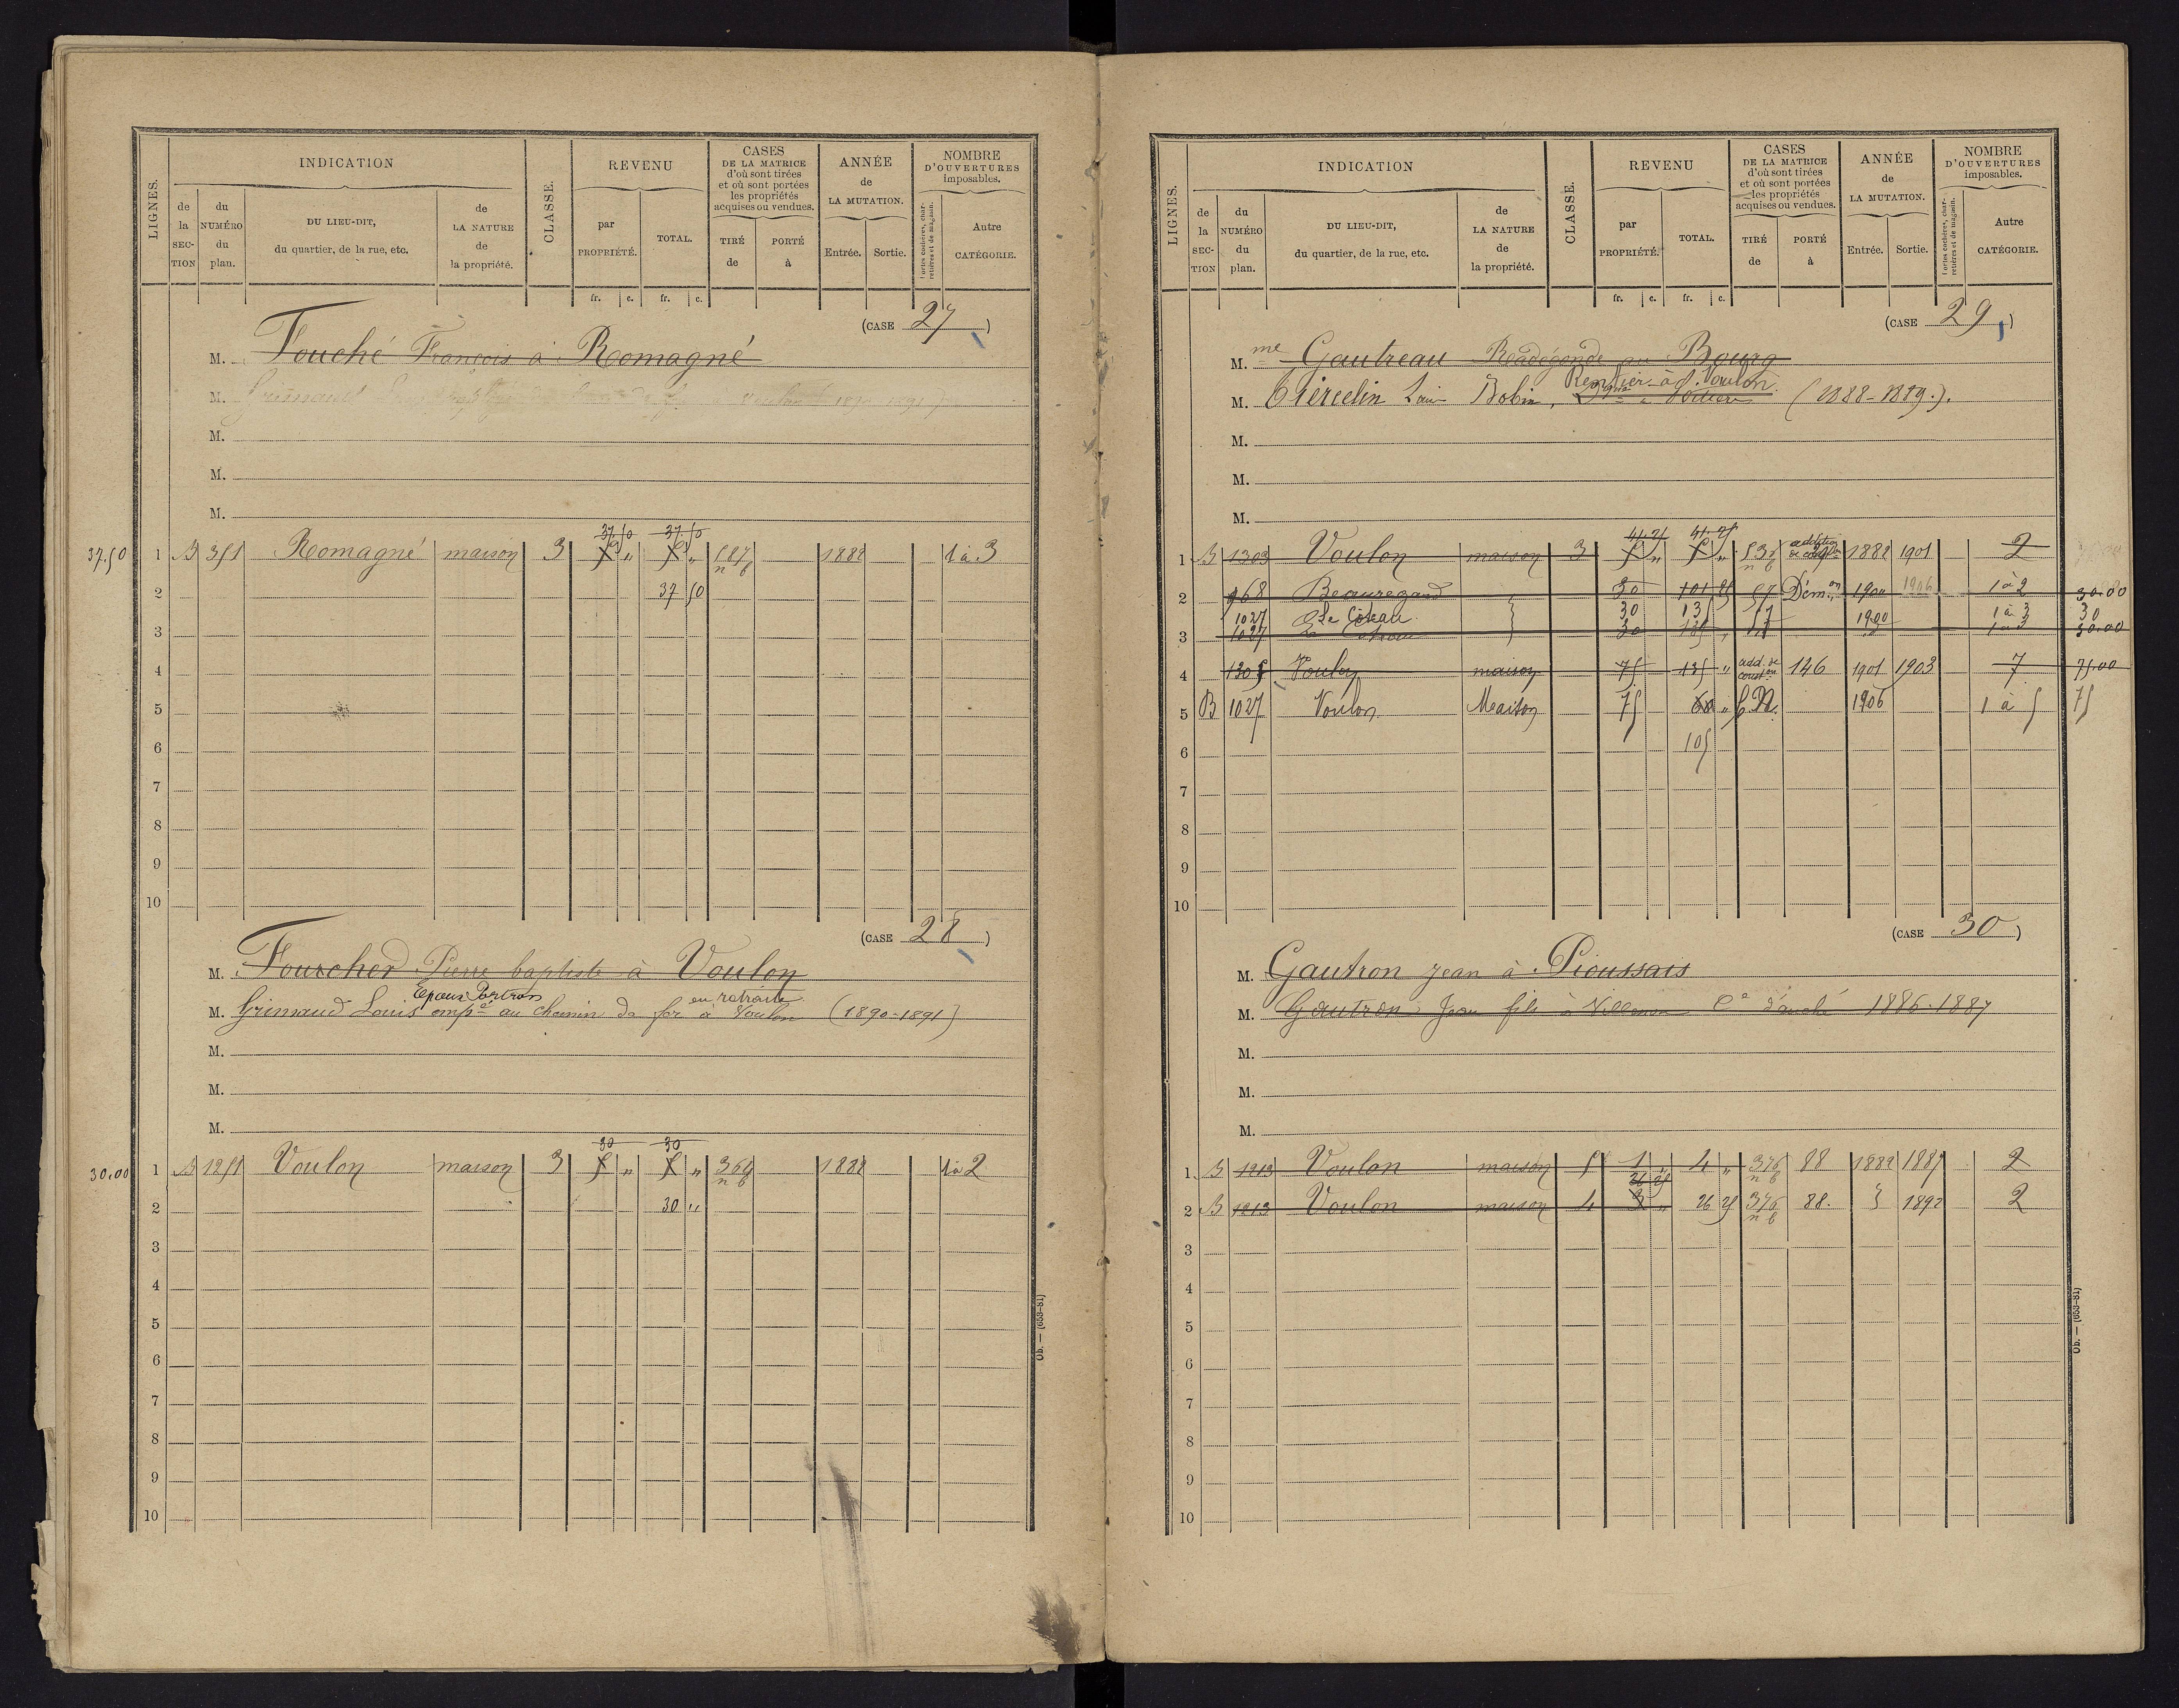 LIGNES.
INDICATION
de la SECTION
du NUMÉRO du plan.
DU LIEU-DIT, du quartier, de la rue, etc.
de LA NATURE de la propriété.
CLASSE.
REVENU
par PROPRIÉTÉ.
TOTAL.
CASES DE LA MATRICE d'où sont tirées et où sont portées les propriétés acquises ou vendues.
TIRÉ de
PORTÉ à
ANNÉE de LA MUTATION.
Entrée.
Sortie.
NOMBRE D'OUVERTURES imposables.
Portes cochères, charretières et de magasin.
Autre CATÉGORIE.
fr. c. fr. c.
(CASE 27)
M. Fouché François à Romagné
M. Grimaud 1890-1891
M.
M.
M.
37 50 37 50
37.50 1 B 351 Romagné maison 3 " " 587 n b 1882 1 à 3
2 37 50
3
4
5
6
7
8
9
10
(CASE 28)
M. Fourcher Pierre baptiste à Voulon
Epoux Portron en retraite
M. Grimaud Louis empé au chemin de fer à Voulon (1890-1891)
M.
M.
M.
30 30
30.00 1 B 1251 Voulon maison 3 " " 364 n b 1882 1 à 2
2 30 "
3
4
5
6
7
8
9
10
Ob. — (653-81)
LIGNES.
INDICATION
de la SECTION
du NUMÉRO du plan.
DU LIEU-DIT, du quartier, de la rue, etc.
de LA NATURE de la propriété.
CLASSE.
REVENU
par PROPRIÉTÉ.
TOTAL.
CASES DE LA MATRICE d'où sont tirées et où sont portées les propriétés acquises ou vendues.
TIRÉ de
PORTÉ à
ANNÉE de LA MUTATION.
Entrée.
Sortie.
NOMBRE D'OUVERTURES imposables.
Portes cochères, charretières et de magasin.
Autre CATÉGORIE.
fr. c. fr. c.
(CASE 29)
M.me Gautreau Radégonde au Bourg
Rentier à Voulon
M. Tiercelin Bobin, (1888-1889).
M.
M.
M.
41.25 41.25
1 B 1303 Voulon maison 3 " " 535 n b addition de const 1882 1901 2
2 968 Beauregard 30 101 25 57 Démon 1900 1906 1 à 2 30.00
1027 Le Coteau 30 135 57 1900 1 à 3 30
3 1027 30 135 " 1 à 3 30.00
4 1305 Voulon maison 75 135 " add. de const on 146 1901 1903 7 75.00
5 B 1027 Voulon Maison 75 60 " C.N. 1906 1 à 5 75
6 105
7
8
9
10
(CASE 30)
M. Gautron jean à Pioussais
M. Gautron Jean fils à 1886-1887
M.
M.
M.
1 B 1213 Voulon maison 5 1 " 4 " 376 n b 88 1882 1887 2
26 25
2 B 1213 Voulon maison 4 3 " 26 25 376 n b 88. 1892 2
3
4
5
6
7
8
9
10
Ob. — (653-81)